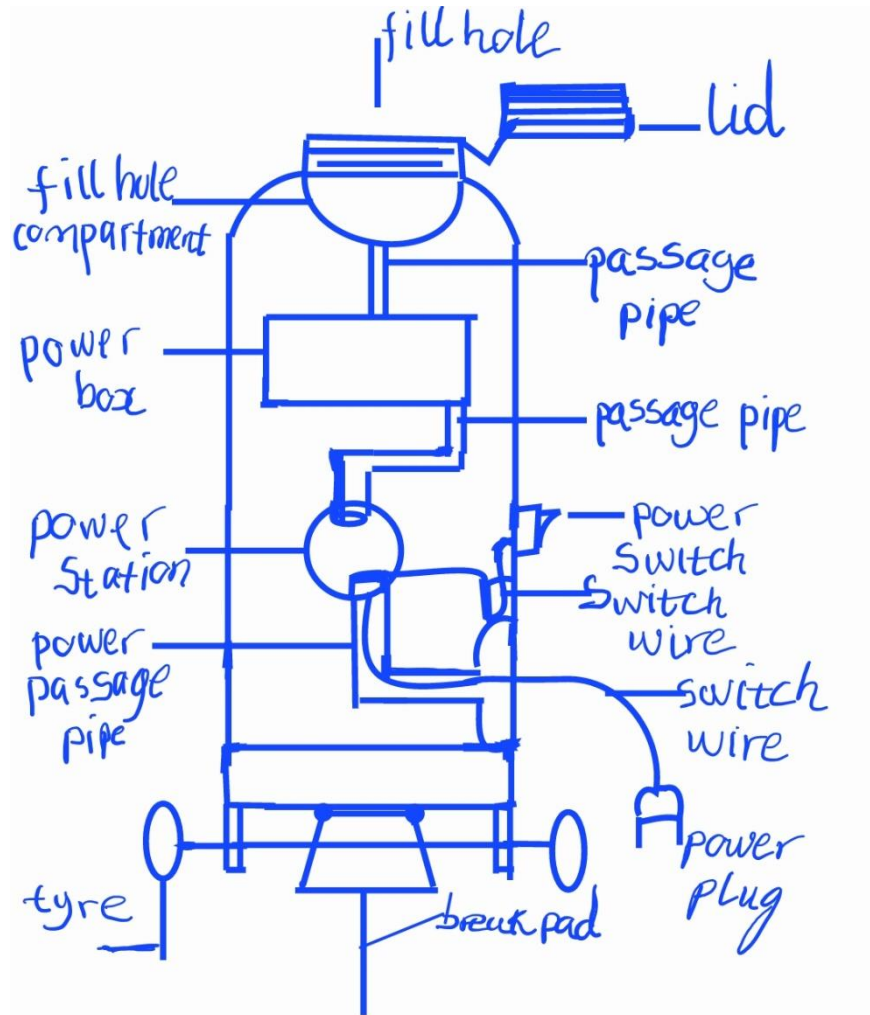 fill hole
lid
fill hole
compartment
passage
pipe
power
box
passage pipe
power
station
power
switch
switch
wire
power
passage
pipe
switch
wire
power
plug
tyre
break pad